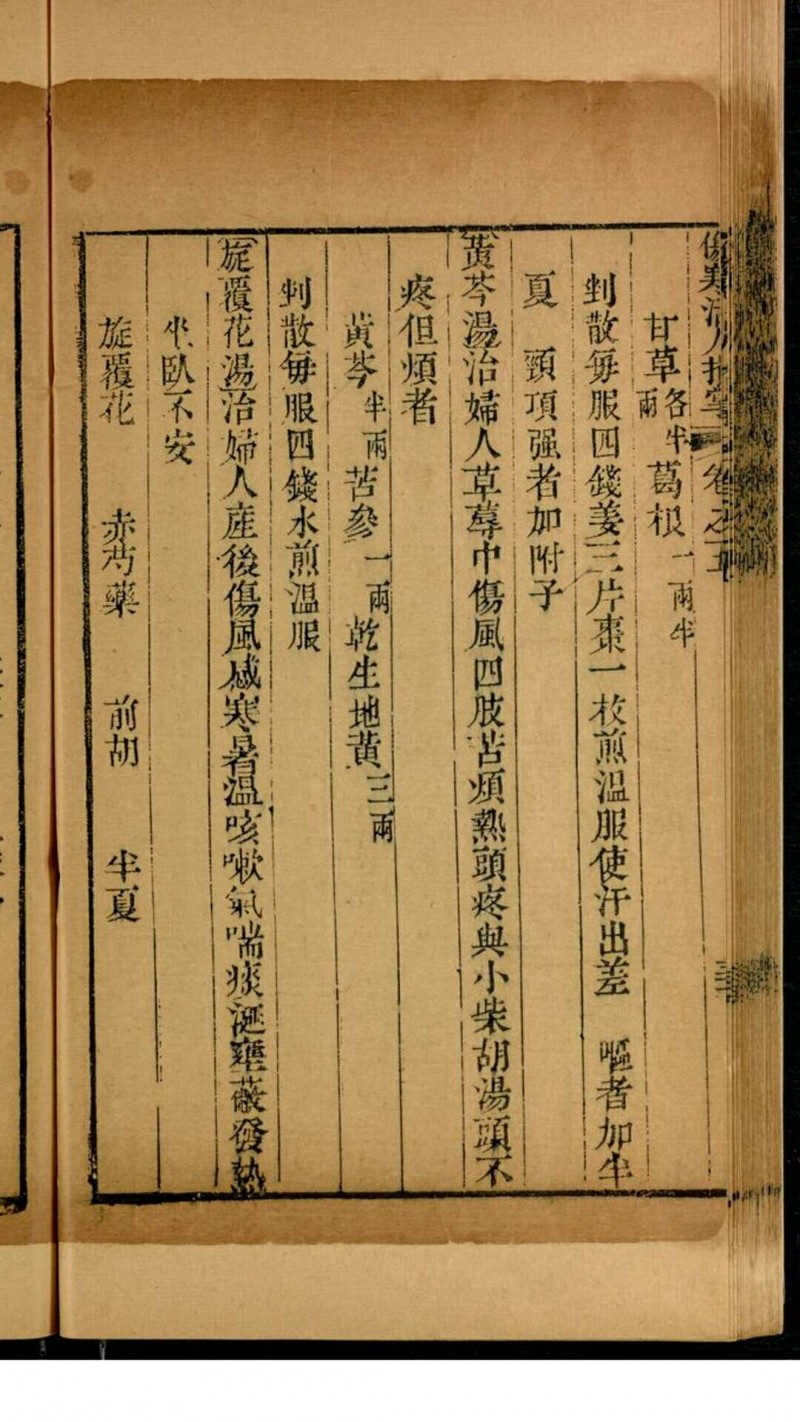 傷寒活人指掌 卷之五
甘草各半兩葛根一兩半
剉散每服四錢姜三片棗一枚煎溫服使汗出差 嘔者加半
夏 頸項强者加附子
黃芩湯治婦人草蓐中傷風四肢苦煩熱頭疼與小柴胡湯頭不
疼但煩者
黃芩半兩苦參一兩乾生地黃三兩
剉散每服四錢水煎溫服
旋覆花湯治婦人產後傷風感寒暑溫咳嗽氣喘痰涎壅蔽發熱
坐臥不安
旋覆花 赤芍藥 前胡 半夏